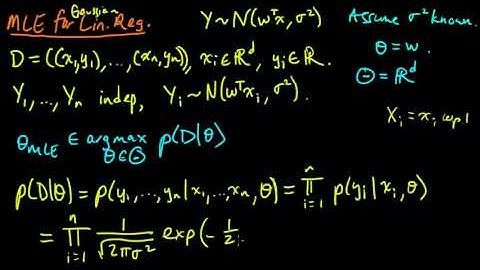 MLE for Gaussian Lin. Reg. Y ~ N(wᵀx, σ²) Assume σ² known.
D = ((x₁,y₁), ..., (xₙ,yₙ)), xᵢ ∈ ℝᵈ, yᵢ ∈ ℝ. θ = w.
Θ = ℝᵈ
Y₁, ..., Yₙ indep, Yᵢ ~ N(wᵀxᵢ, σ²). Xᵢ = xᵢ wp 1
θ_MLE ∈ argmax_{θ∈Θ} p(D|θ)
p(D|θ) = p(y₁, ..., yₙ | x₁, ..., xₙ, θ) = ∏_{i=1}^{n} p(yᵢ | xᵢ, θ)
= ∏_{i=1}^{n} 1/√(2πσ²) exp(- 1/2